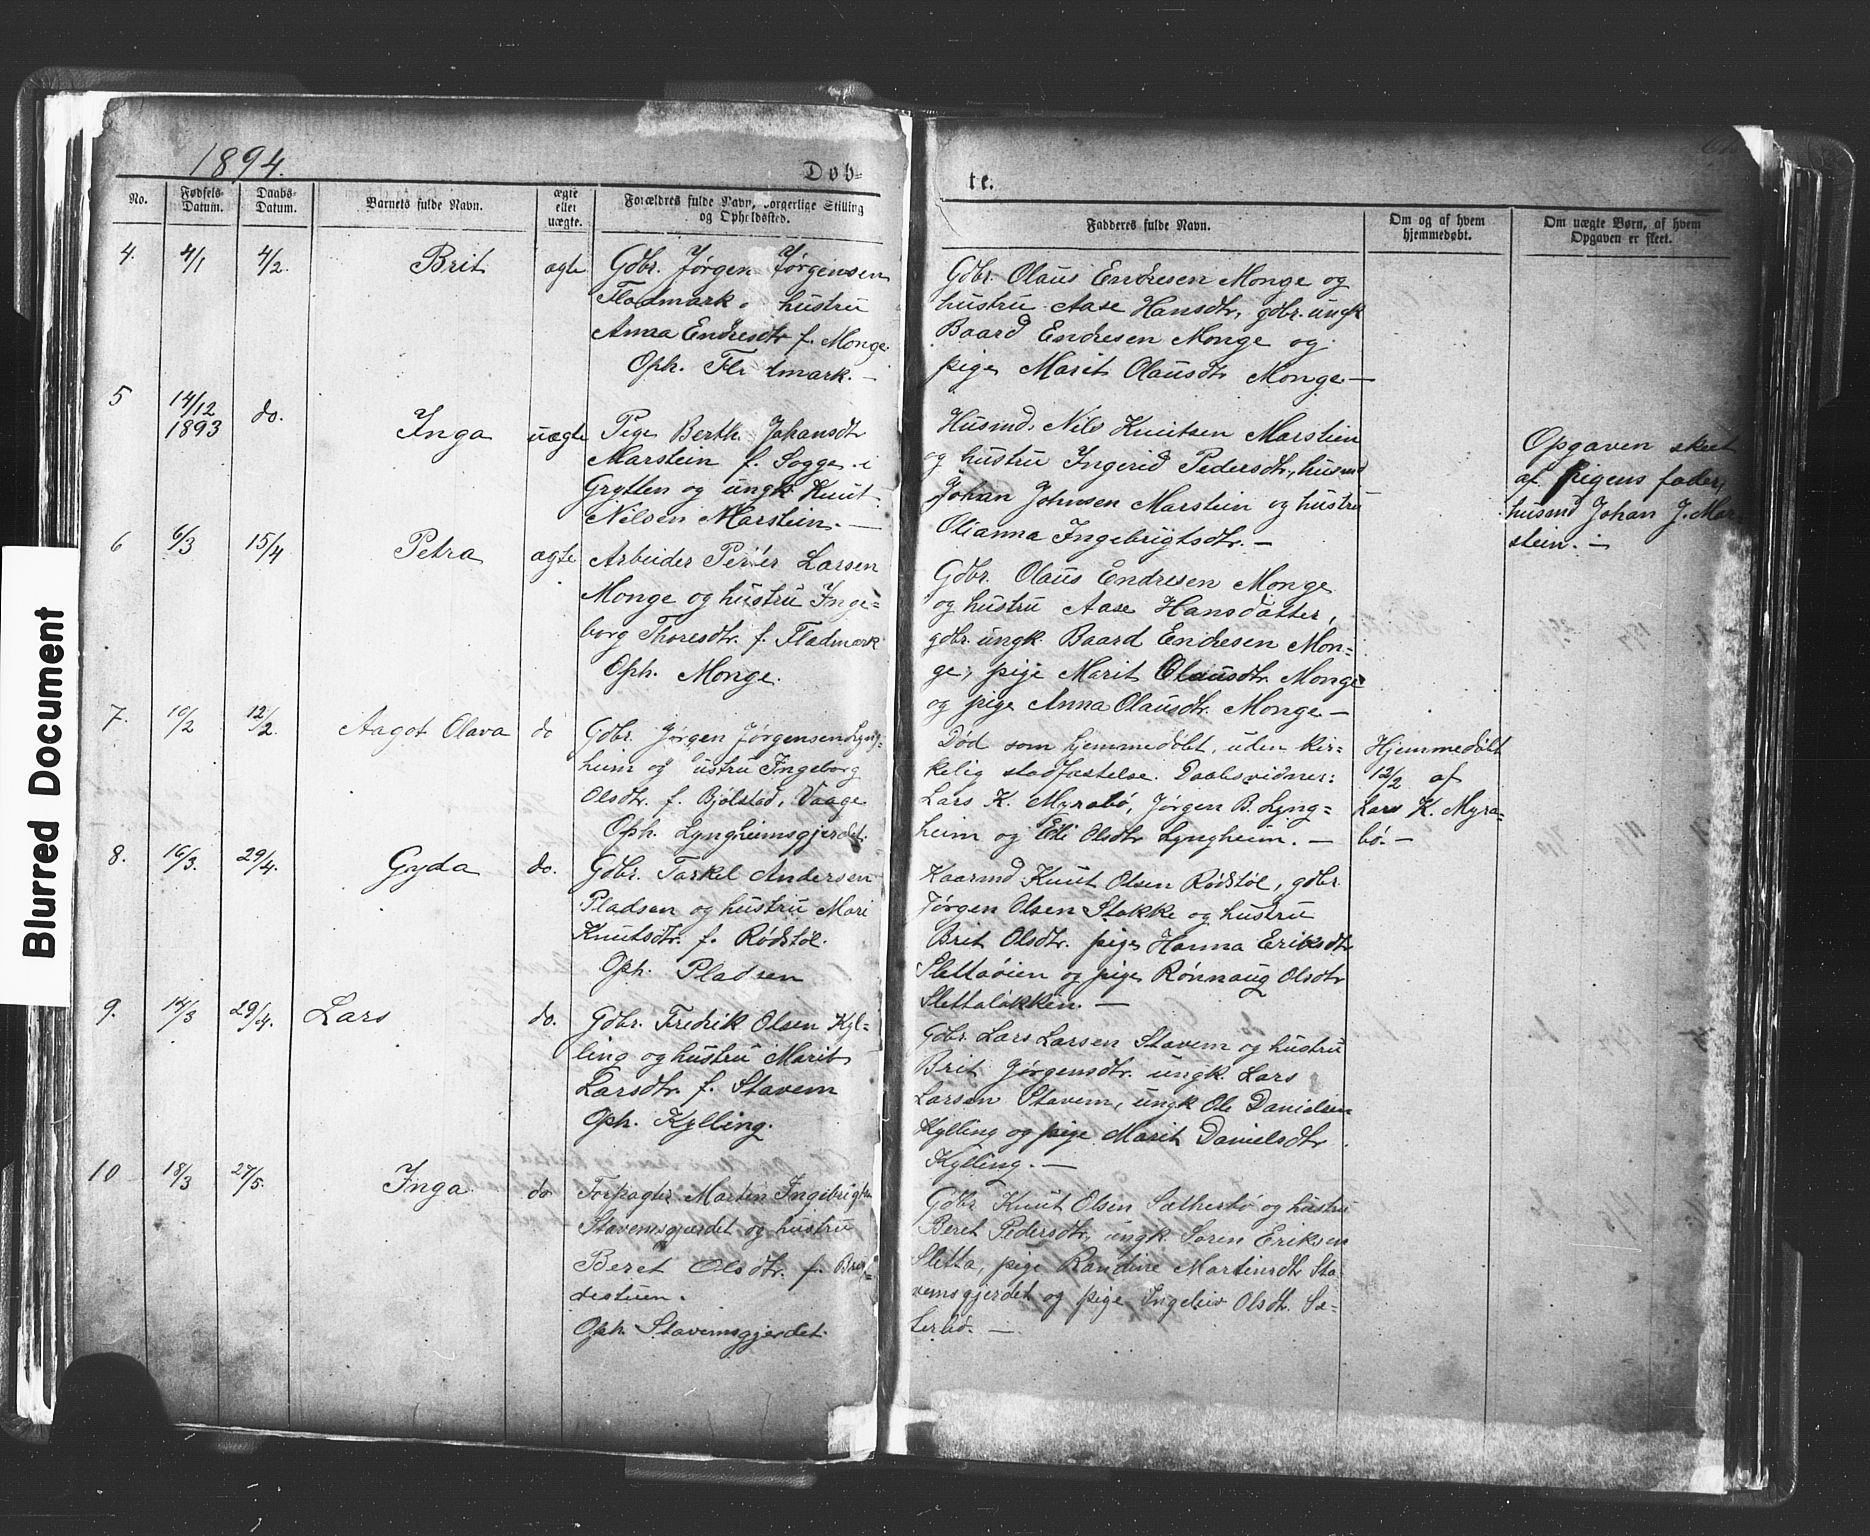 Blurred Document
1894.
Døb-
te.
No.
Fødsels-Datum.
Daabs-Datum.
Barnets fulde Navn.
ægte eller uægte.
Forældres fulde Navn, borgerlige Stilling og Opholdssted.
Faddernes fulde Navn.
Om og af hvem hjemmedøbt.
Om uægte Børn, af hvem Opgaven er skeet.
4. 4/1 4/2. Brit ægte
Gdbr. Jørgen Jørgensen
Fladmark. hustru
Anna Endresdtr f. Monge
Oph. Fladmark. —
Gdbr. Olaus Endresen Monge og
hustru Aase Hansdtr, gdbr. ungk
Baard Endresen Monge og
pige Marit Olausdtr Monge —
5 14/12 1893 do. Inga uægte
Pige Berth. Johansdtr
Marstein f. Sogge i
Grytten og ungk Knut
Nilsen Marstein. —
Husmd. Nils Knutsen Marstein
og hustru Ingerid Pedersdtr, husmd
Johan Johnsen Marstein og hustru
Olianna Ingebrigtsdtr. —
Opgaven skeet
af pigens fader,
husmd Johan J. Mar-
stein. —
6 6/3 15/4 Petra ægte
Arbeider Peder Larsen
Monge og hustru Inge-
borg Thoresdtr. f. Fladmark
Oph. Monge.
Gdbr. Olaus Endresen Monge
og hustru Aase Hansdatter,
gdbr. ungk. Baard Endresen Mon-
ge, pige Marit Olausdtr. Monge
og pige Anna Olausdtr. Monge —
7. 10/2 12/2. Aagot Olava do
Gdbr. Jørgen Jørgensen Lyng-
heim og hustru Ingeborg
Olsdtr. f. Bjølstad, Vaage
Oph. Lyngheimsgjerdet.
Død som hjemmedøbt, uden kir-
kelig stadfæstelse. Daabsvidner:
Lars K. Myrabø, Jørgen B. Lyng-
heim og Eli Olsdtr Lyngheim. —
Hjemmedøbt
12/2 af
Lars K. Myra-
bø. —
8. 16/3. 29/4. Gyda do.
Gdbr. Torkel Andersen
Pladsen og hustru Mari
Knutsdtr. f. Rødstøl.
Oph. Pladsen
Kaarmd Knut Olsen Rødstøl, gdbr.
Jørgen Olsen Stokke og hustru
Brit Olsdtr. pige Hanna Eriksdtr
Slettaøien og pige Rønnaug Olsdtr
Slettaløkken. —
9. 14/3 29/4. Lars do.
Gdbr. Fredrik Olsen Kyl-
ling og hustru Marit
Larsdtr. f. Stavem
Oph. Kylling.
Gdbr. Lars Larsen Stavem og hustru
Brit Jørgensdtr. ungk. Lars
Larsen Stavem, ungk Ole Danielsen
Kylling og pige Marit Danielsdtr
Kylling. —
10 18/3 27/5. Inga do
Forpagter Martin Ingebrigtsen
Stavemsgjerdet og hustru
Beret Olsdtr. f.
destuen.
Oph. Stavemsgjerdet.
Gdbr Knut Olsen Sætherbø og hustru
Beret Pedersdtr, ungk. Søren Eriksen
Sletta, pige Randine Martinsdtr Sta-
vemsgjerdet og pige Ingeleiv Olsdtr. Sæ-
terbø. —